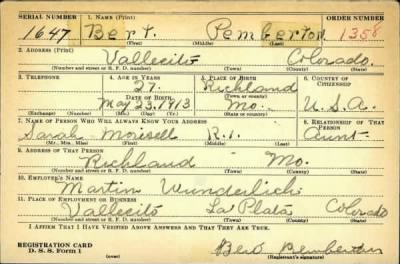 SERIAL NUMBER 1. NAME (Print) ORDER NUMBER
1647 Bert. Pemberton 1358
(First) (Middle) (Last)
2. ADDRESS (Print)
Vallecito Colorado.
(Number and street or R. F. D. number) (Town) (County) (State)
3. TELEPHONE 4. AGE IN YEARS 5. PLACE OF BIRTH 6. COUNTRY OF CITIZENSHIP
27. Richland
DATE OF BIRTH (Town or county)
May 23, 1913 Mo. U.S.A.
(Exchange) (Number) (Mo.) (Day) (Yr.) (State or country)
7. NAME OF PERSON WHO WILL ALWAYS KNOW YOUR ADDRESS 8. RELATIONSHIP OF THAT PERSON
Sarah R.1. Aunt.
(Mr., Mrs., Miss) (First) (Middle) (Last)
9. ADDRESS OF THAT PERSON
Richland Mo.
(Number and street or R. F. D. number) (Town) (County) (State)
10. EMPLOYER'S NAME
Martin Wunderlich
11. PLACE OF EMPLOYMENT OR BUSINESS
Vallecito La Plata Colorado
(Number and street or R. F. D. number) (Town) (County) (State)
I AFFIRM THAT I HAVE VERIFIED ABOVE ANSWERS AND THAT THEY ARE TRUE.
REGISTRATION CARD
D. S. S. Form 1 Bert Pemberton
(Registrant's signature)